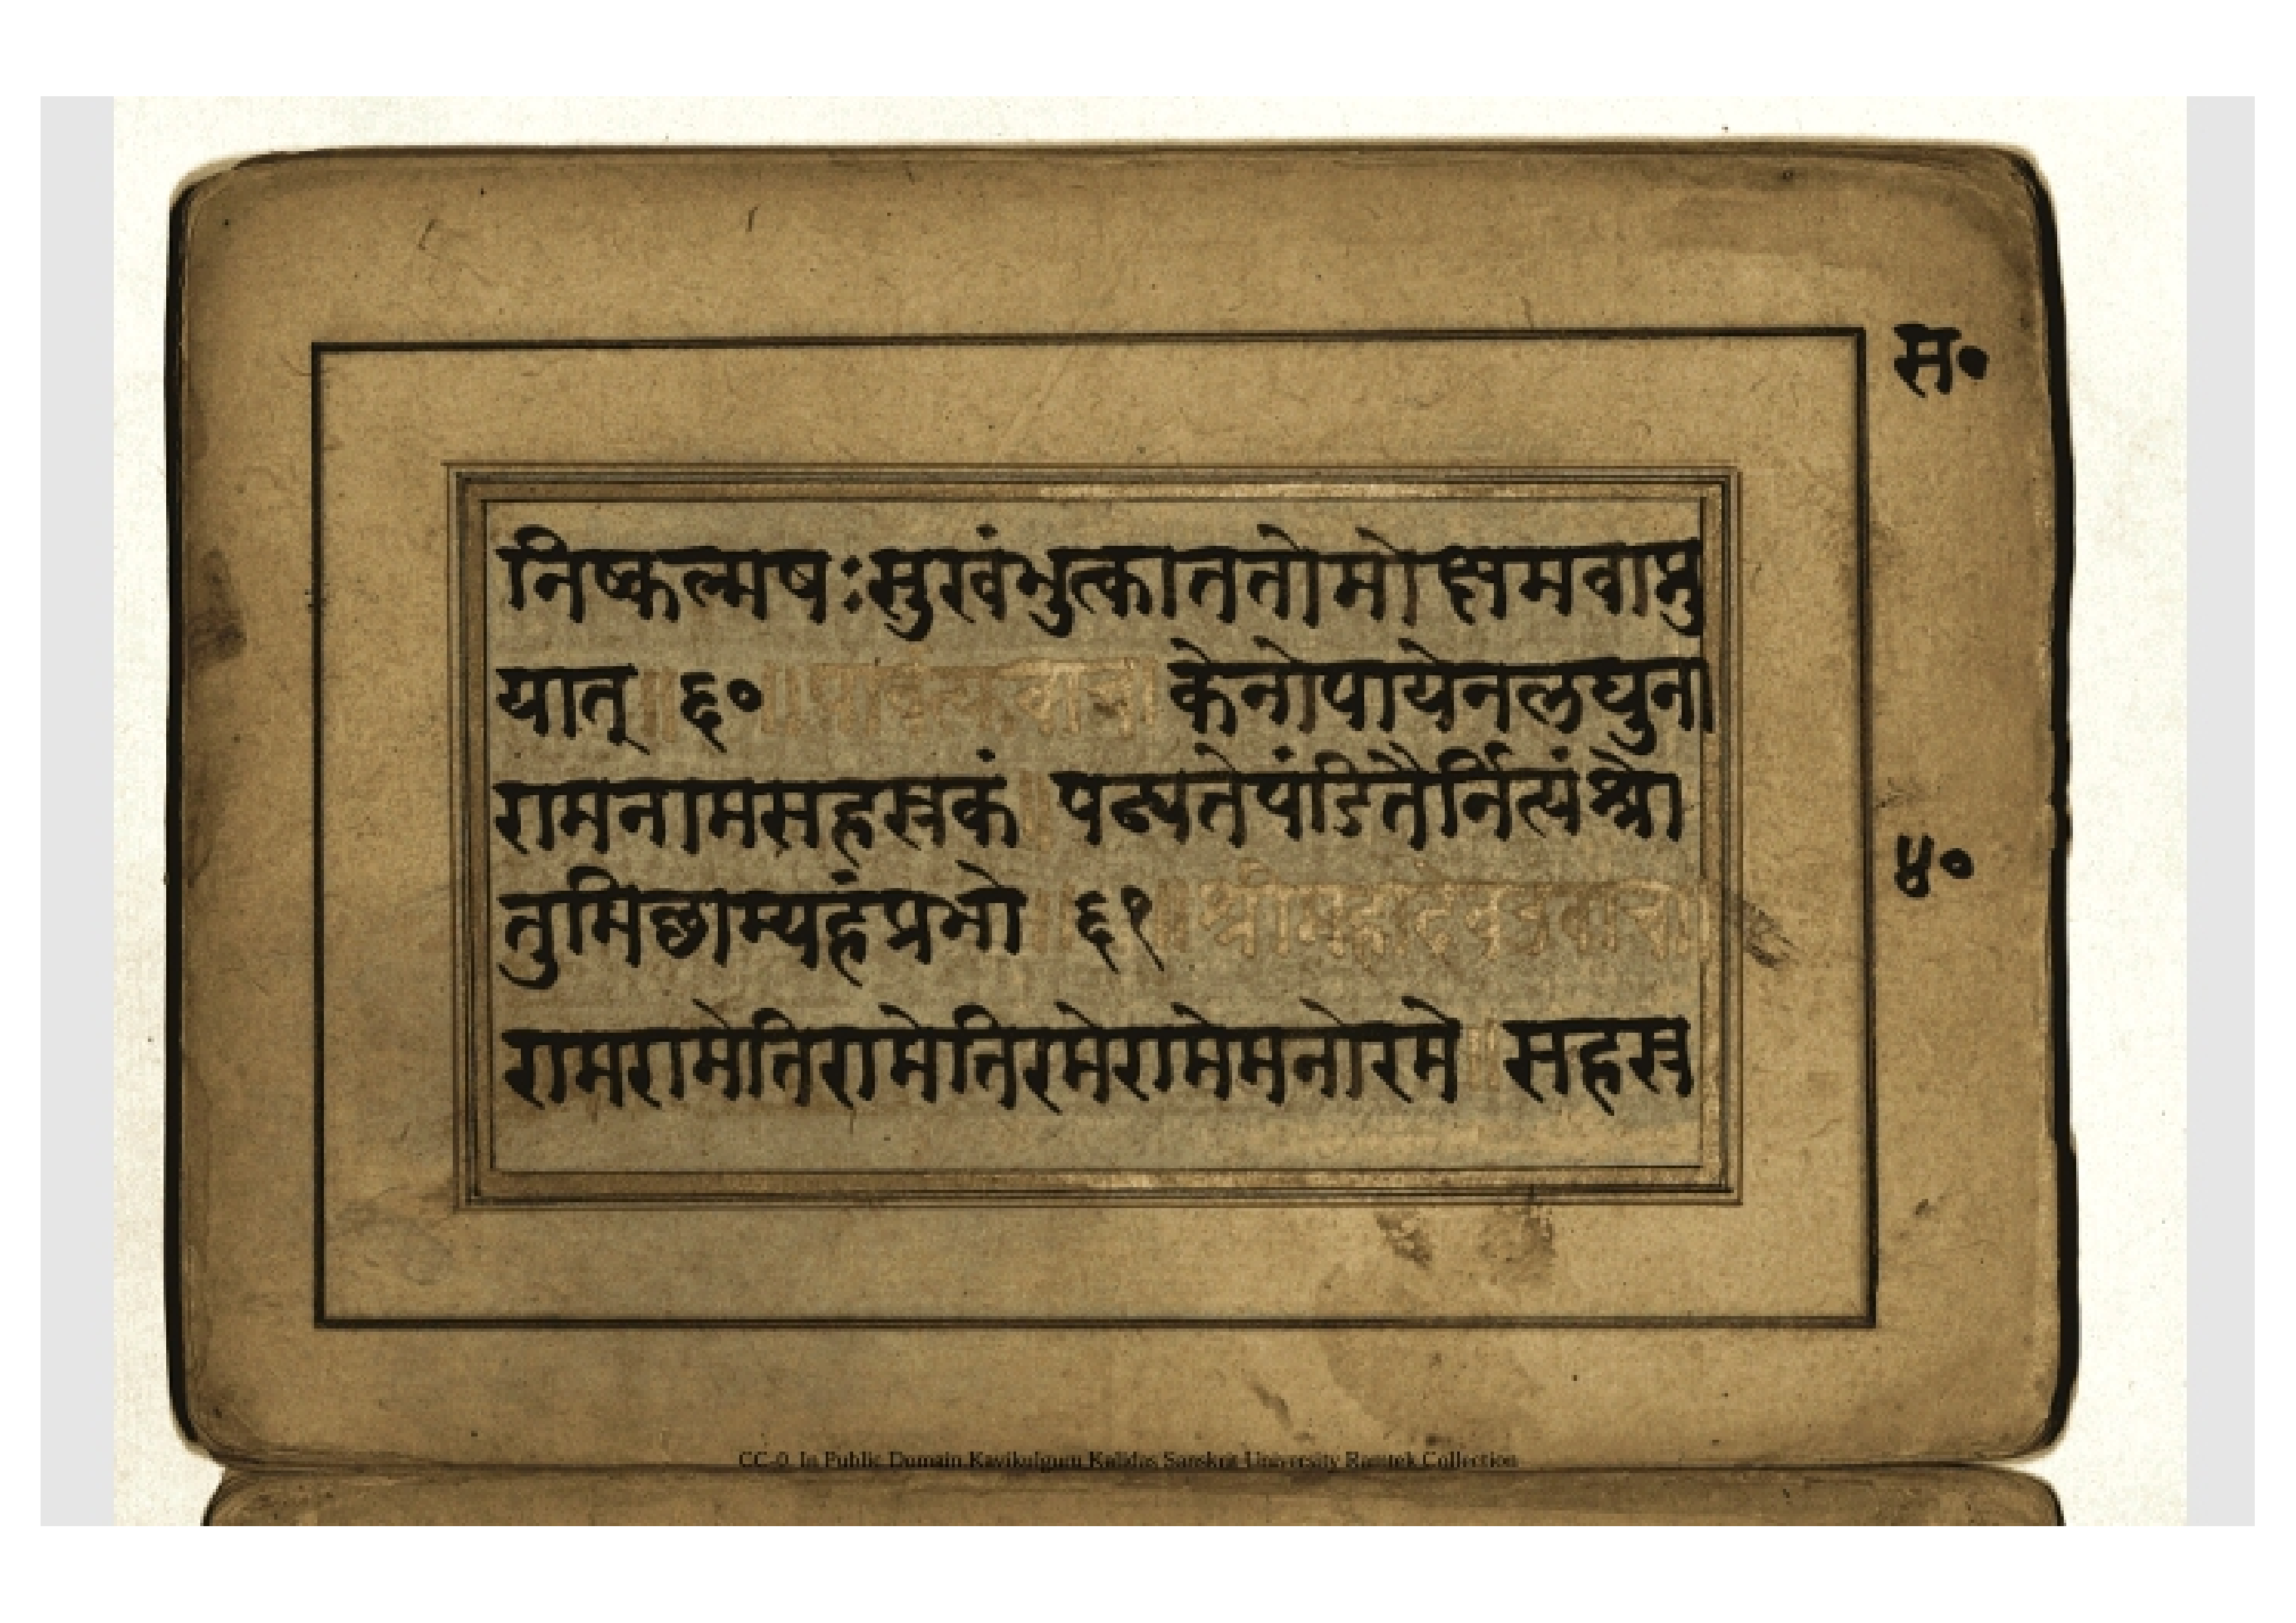 स॰
निष्कल्मषःसुखंभुत्काततोमोक्षमवाप्नु
यात्॥ ६० ॥ केनोपायेनलघुना
रामनामसहस्रकं॥ पठ्यतेपंडितैर्नित्यंश्रो
तुमिछाम्यहंप्रभो॥ ६१ ॥श्रीमहादेवउवाच॥
रामरामेतिरामेतिरमेरामेमनोरमे॥ सहस्र
४०
CC-0. In Public Domain Kavikulguru Kalidas Sanskrit University Ramtek Collection